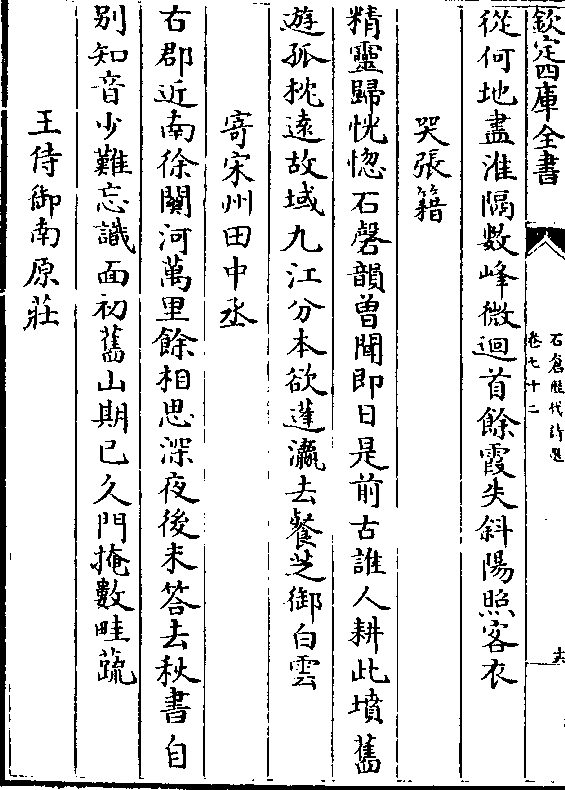 欽定四庫全書
石倉歷代詩選
卷七十二
六
從何地盡淮隔數峰微迴首餘霞失斜陽照客衣
哭張籍
精靈歸恍惚石磬韻曾聞即日是前古誰人耕此墳舊
遊孤枕遠故域九江分本欲蓬瀛去餐芝御白雲
寄宋州田中丞
右郡近南徐關河萬里餘相思深夜後未答去秋書自
别知音少難忘識面初舊山期已久門掩數畦蔬
王侍御南原莊